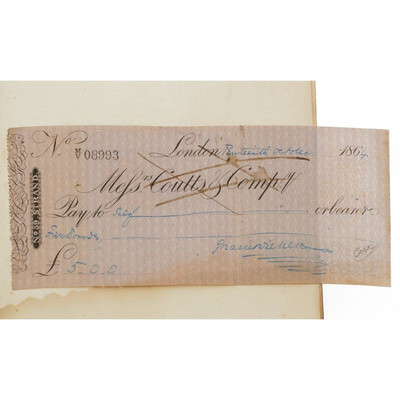 No N/V 08993 London Fourteenth October 1864
Messrs Coutts & Compy
Pay to Self or bearer
Five Pounds
£ 5.0.0
Charles Dickens
No 59, STRAND.